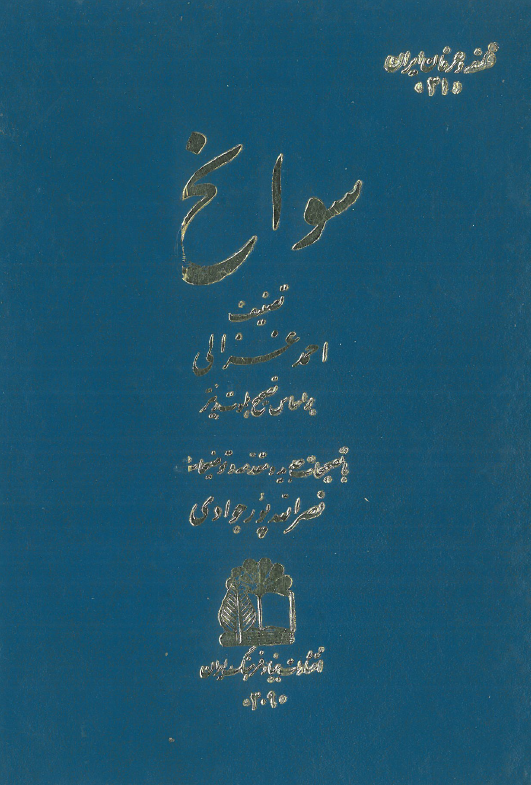 فلسفه و عرفان ایران
«۳۱»
سوانح
تصنیف
احمد غزالی
بر اساس تصحیح هلموت ریتر
با تصحیحات جدید و مقدمه و توضیحات
نصرالله پورجوادی
انتشارات بنیاد فرهنگ ایران
«۳۰۹»